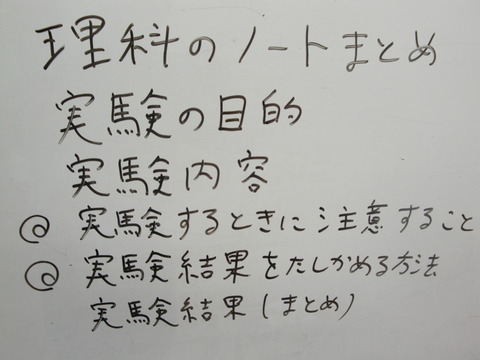 理科のノートまとめ
実験の目的
実験内容
◎ 実験するときに注意すること
◎ 実験結果をたしかめる方法
実験結果(まとめ)